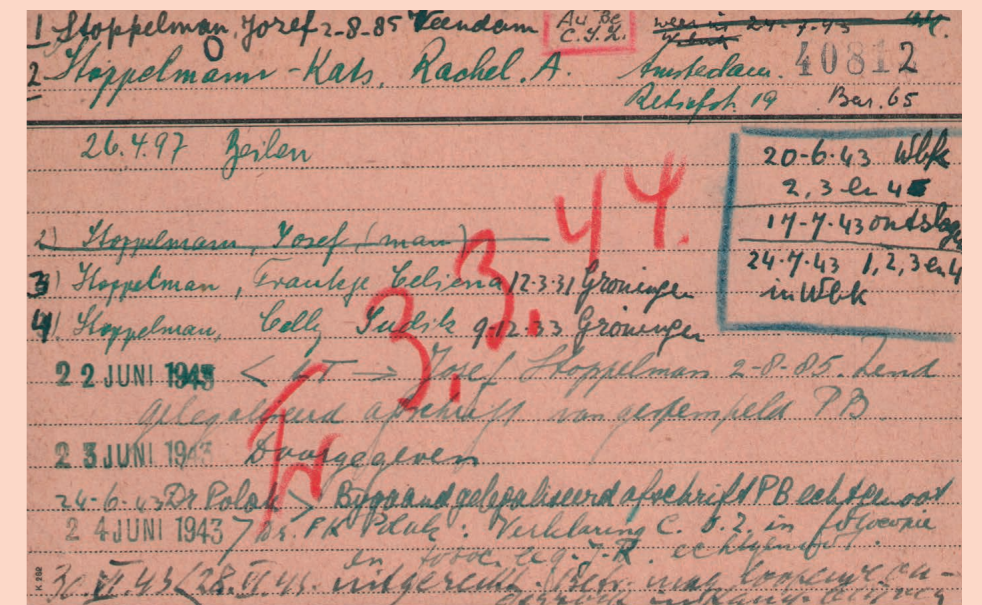 1 Stoppelman, Jozef 2-8-85 Veendam
Au. Be
C.I.Z.
24-7-43
40812
2 Stoppelmann-Kats, Rachel. A. Amsterdam.
Retiefstr. 19 Bar. 65
26.4.97 Beilen
20-6-43 Wbk
2, 3 en 4
17-7-43 ontslag
24-7-43 1, 2, 3 en 4
in Wbk
2) Stoppelmann, Josef (man)
3) Stoppelman, Frankje Celiena 12-3-31 Groningen
4) Stoppelman, Celly Judik 9-12-33 Groningen
Tr 3.3.44.
22 JUNI 1943 < UT -> Josef Stoppelman 2-8-85. Zend
gelegaliseerd afschrift van gestempeld PB
23 JUNI 1943 Doorgegeven
24-6-43 Dr Polak > Bijgaand gelegaliseerd afschrift PB echtgenoot
24 JUNI 1943 / Dr. PK Polak: Verklaring C.I.Z. in fotocopie
en echtgenoot.
30.VI 43 (28.VI 43. uitgereikt.
K 262